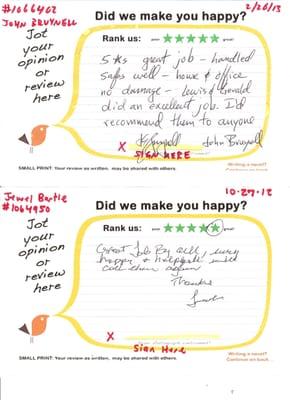 #1066402
JOHN BRUYNELL
2/26/13
Did we make you happy?
Jot
your
opinion
or
review
here
Rank us:
5 *s great job - handled
safes well - house & office
no damage - Lewis & Gerald
did an excellent job. I'd
recommend them to anyone
John Bruynell
X SIGN HERE
SMALL PRINT: Your review as written, may be shared with others.
Writing a novel?
Continue on back...
Jewel Bartle
#1064950
10-27-12
Did we make you happy?
Jot
your
opinion
or
review
here
Rank us:
Great Job By all, very
happy & helpful will
call them again
Thanks
X
Sign Here
SMALL PRINT: Your review as written, may be shared with others.
Writing a novel?
Continue on back...